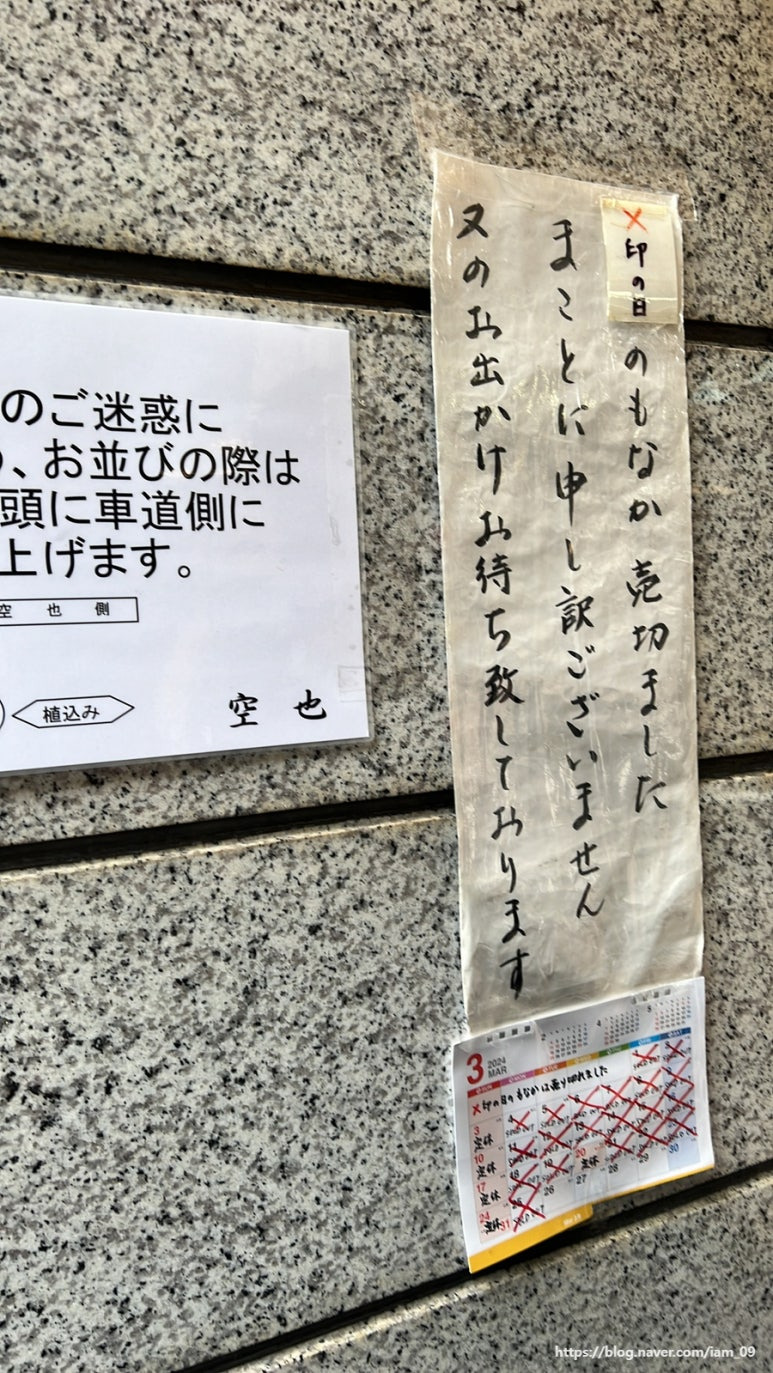 のご迷惑に
、お並びの際は
頭に車道側に
上げます。
空 也 側
植込み
空 也
×印の日のもなか売切ました
まことに申し訳ございません
又のお出かけお待ち致しております
3 2024 MAR
×印の日のもなかは売り切れました
3 定休 4 SOLD OUT 5 SOLD OUT
10 定休
17 定休 18 20 定休
24 定休 31 SOLD OUT 26 27 28 29 30
https://blog.naver.com/iam_09